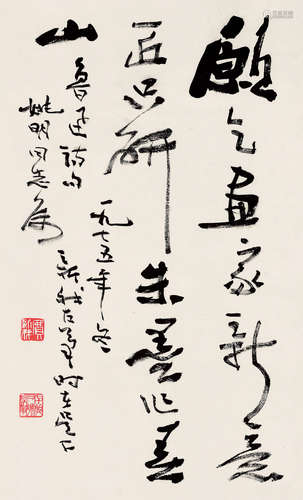 願乞畫家新意
匠只研朱墨作春
山
魯迅詩句
姚明同志屬
一九七五年冬
新我左筆時在